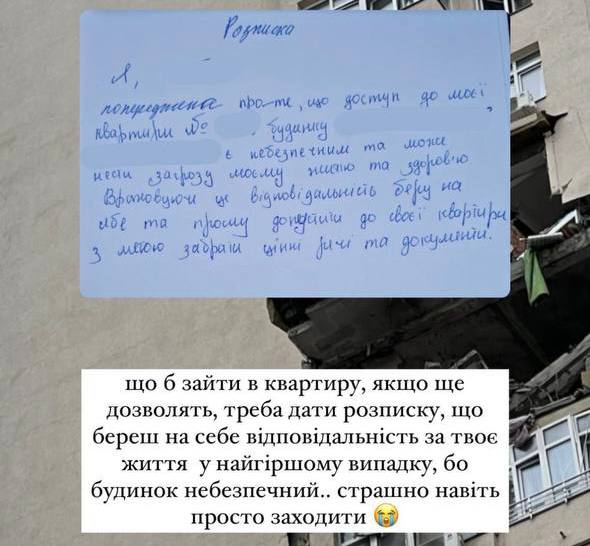 Розписка
Я,
попереджена про те, що доступ до моєї
квартири №   , будинку   ,
є небезпечним та може
нести загрозу моєму життю та здоров'ю
Враховуючи це відповідальність беру на
себе та прошу допустити до своєї квартири
з метою забрати цінні речі та документи.
що б зайти в квартиру, якщо ще
дозволять, треба дати розписку, що
береш на себе відповідальність за твоє
життя у найгіршому випадку, бо
будинок небезпечний.. страшно навіть
просто заходити 😭